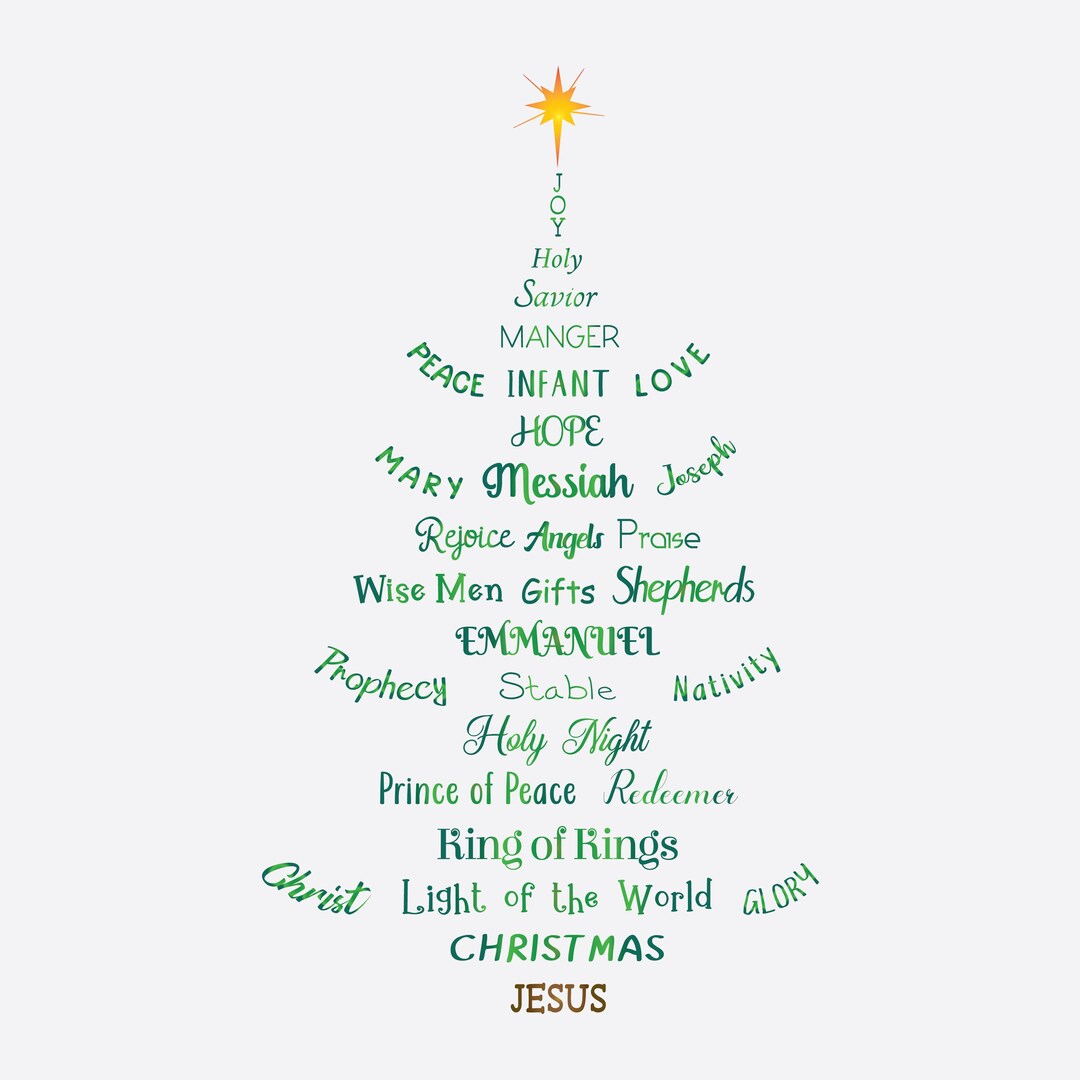 JOY
Holy
Savior
MANGER
PEACE INFANT LOVE
HOPE
MARY Messiah Joseph
Rejoice Angels Praise
Wise Men Gifts Shepherds
EMMANUEL
Prophecy Stable Nativity
Holy Night
Prince of Peace Redeemer
King of Kings
Christ Light of the World GLORY
CHRISTMAS
JESUS